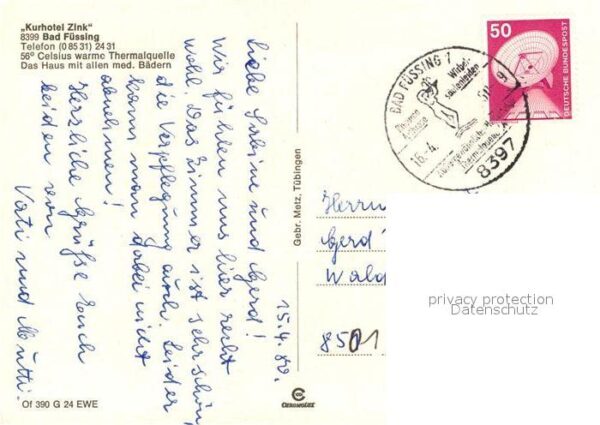 „Kurhotel Zink"
8399 Bad Füssing
Telefon (0 85 31) 24 31
56° Celsius warme Thermalquelle
Das Haus mit allen med. Bädern
15.4.80.
Liebe Sabine und Gerd!
Wir fühlen uns hier recht
wohl. Das Zimmer ist sehr schön,
die Verpflegung auch. Leider
kann man dabei nicht
abnehmen!
Herzliche Grüße Euch
beiden von
Vati und Mutti.
Of 390 G 24 EWE
Gebr. Metz, Tübingen
CHROMOLUX
50
DEUTSCHE BUNDESPOST
BAD FÜSSING 1
Wirbel-
säulenleiden
Rheuma
Arthrose
16.-4.
8397
Herrn
Gerd
Wald
8501
privacy protection
Datenschutz